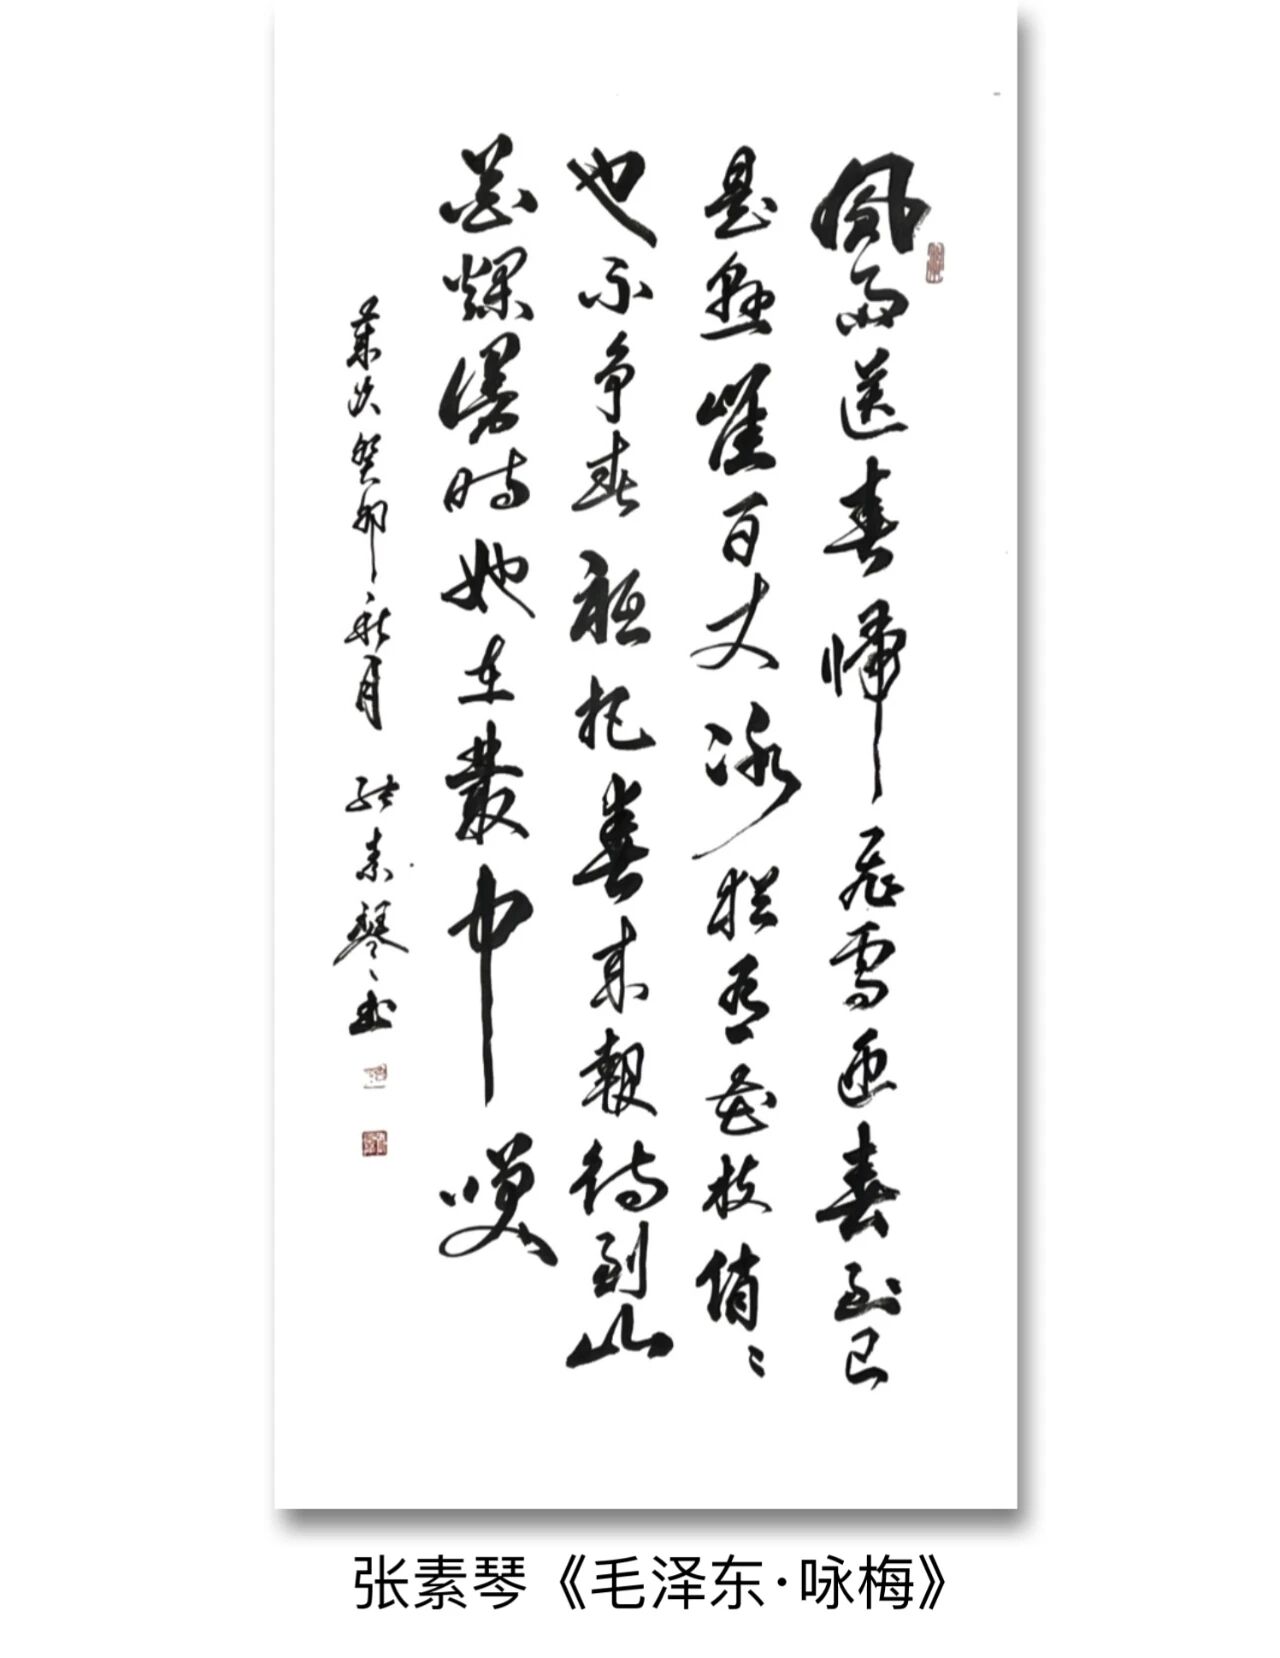 風雨送春歸飛雪迎春到已
是懸崖百丈冰猶有花枝俏〻
也不争春祗把春来報待到山
花爛漫時她在叢中咲
歲次癸卯秋月 張素琴书
张素琴《毛泽东·咏梅》